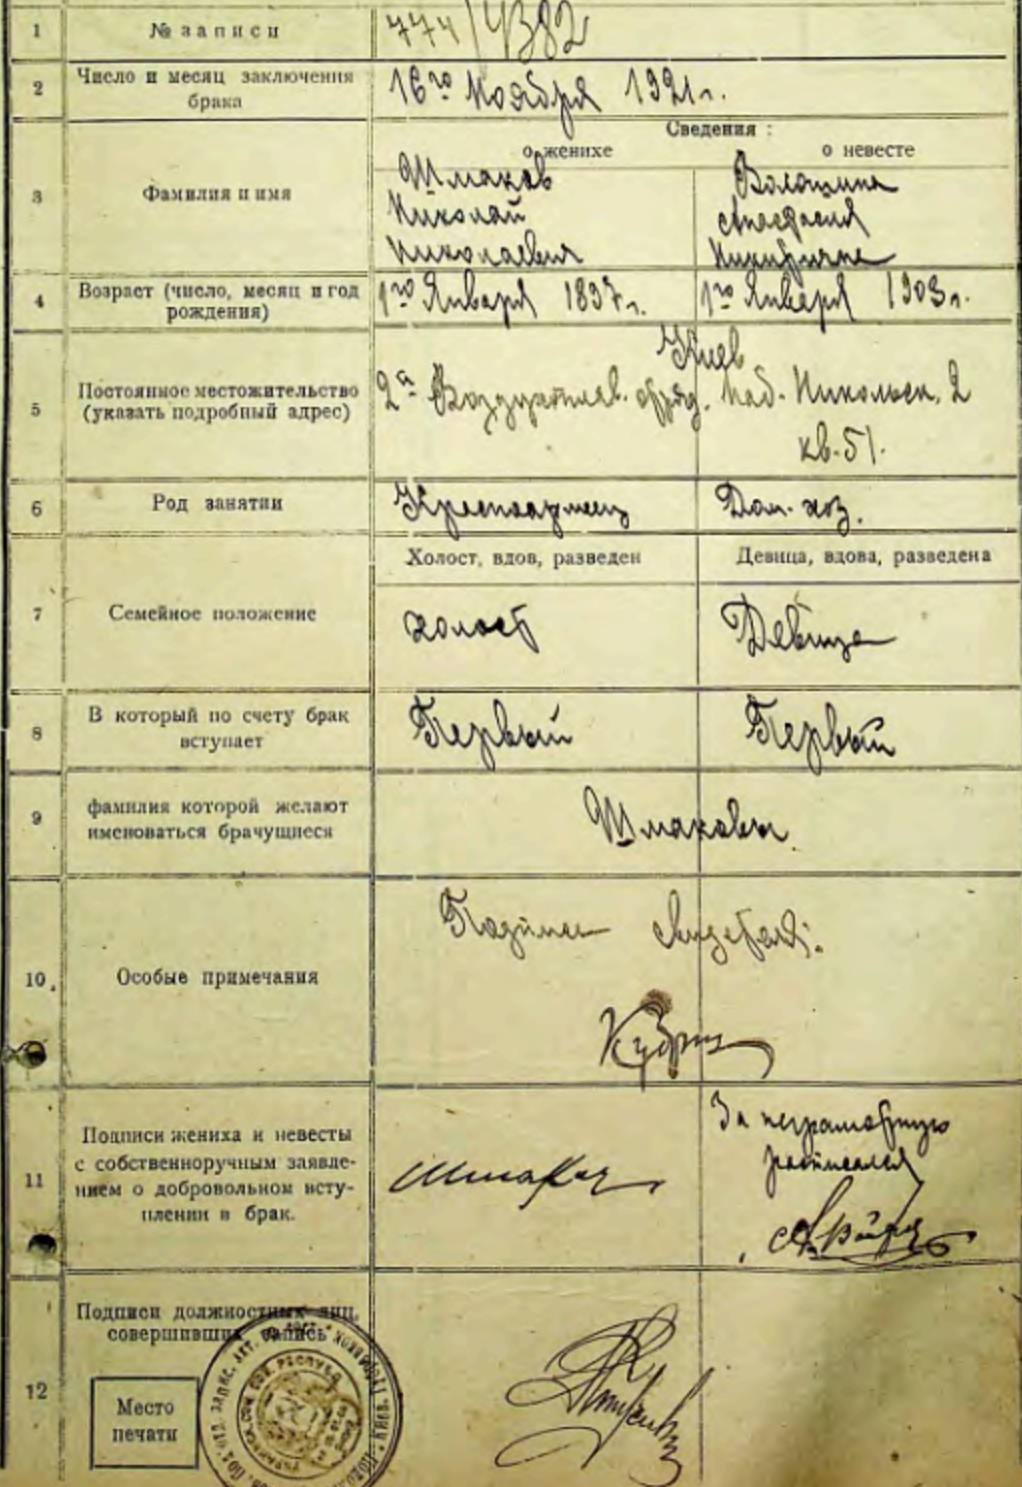 1 № записи 774/4382
2 Число и месяц заключения
брака
16го Ноября 1921 г.
Сведения :
о женихе о невесте
3 Фамилия и имя
Шмаков
Николай
Николаевич
Волошина
Анастасия
Никитична
4 Возраст (число, месяц и год
рождения)
1го Января 1897 г. 1го Января 1903 г.
5 Постоянное местожительство
(указать подробный адрес)
Киев
2й Воздухоплав. отряд. Наб. Никольск. 2
кв. 51.
6 Род занятии Красноармеец Дом. хоз.
Холост, вдов, разведен Девица, вдова, разведена
7 Семейное положение холост Девица
8 В который по счету брак
вступает
Первый Первый
9 фамилия которой желают
именоваться брачущиеся
Шмаковы
10. Особые примечания
Подписи свидетелей:
11 Подписи жениха и невесты
с собственноручным заявле-
нием о добровольном всту-
плении в брак.
Шмаков
За неграмотную
расписался
12 Подписи должностных лиц,
совершивших запись
Место
печати